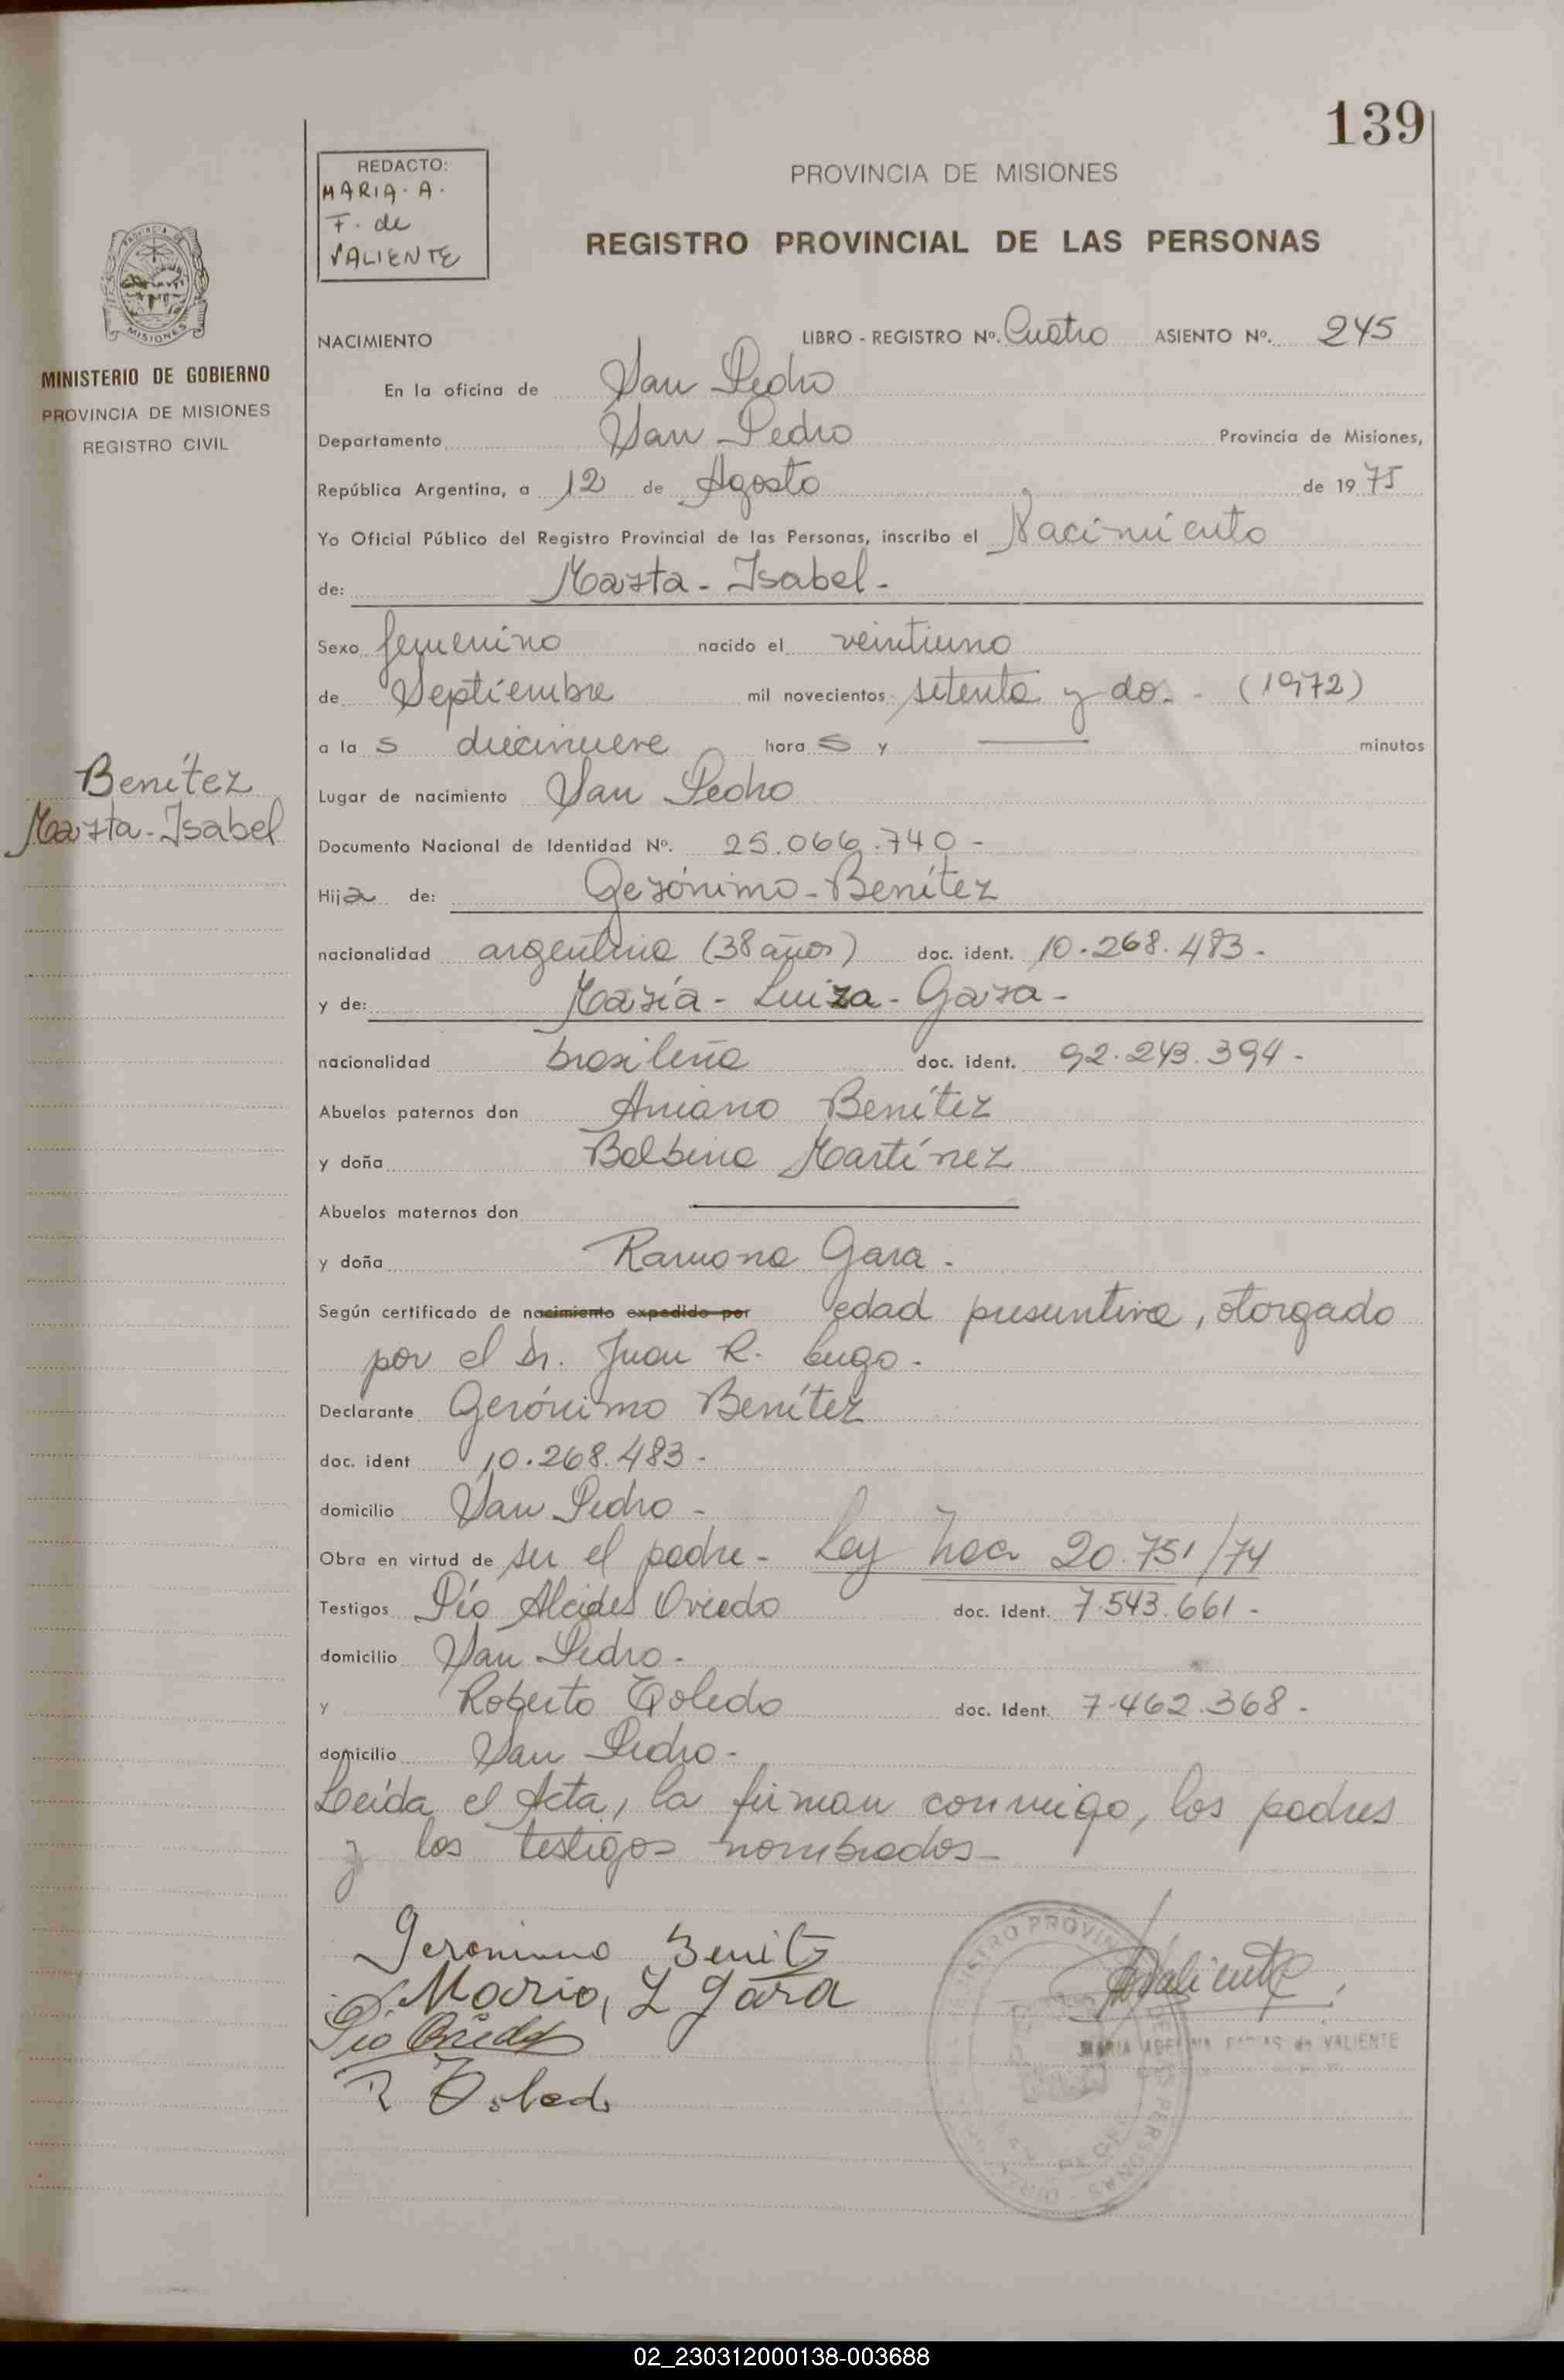 139
REDACTO:
MARIA. A.
F. de
VALIENTE
PROVINCIA DE MISIONES
REGISTRO PROVINCIAL DE LAS PERSONAS
PROVINCIA DE
MISIONES
MINISTERIO DE GOBIERNO
PROVINCIA DE MISIONES
REGISTRO CIVIL
NACIMIENTO LIBRO - REGISTRO Nº. Cuatro ASIENTO Nº. 245
En la oficina de San Pedro
Departamento San Pedro Provincia de Misiones,
República Argentina, a 12 de Agosto de 1975
Yo Oficial Público del Registro Provincial de las Personas, inscribo el Nacimiento
de: Marta - Isabel -
Sexo femenino nacido el veintiuno
de Septiembre mil novecientos setenta y dos - (1972)
a las diecinueve horas y — minutos
Benítez
Marta - Isabel
Lugar de nacimiento San Pedro
Documento Nacional de Identidad Nº. 25.066.740 -
Hija de: Gerónimo - Benítez
nacionalidad argentina (38 años) doc. ident. 10.268.483 -
y de: María - Luiza - Gara -
nacionalidad brasileña doc. ident. 92.243.394 -
Abuelos paternos don Aniano Benítez
y doña Balbina Martínez
Abuelos maternos don —
y doña Ramona Gara .
Según certificado de nacimiento expedido por edad presuntiva, otorgado
por el Dr. Juan R. Lugo .
Declarante Gerónimo Benítez
doc. ident 10.268.483 -
domicilio San Pedro -
Obra en virtud de ser el padre - Ley Nac. 20.751/74
Testigos Pío Alcides Oviedo doc. Ident. 7.543.661 -
domicilio San Pedro -
y Roberto Toledo doc. Ident. 7.462.368 -
domicilio San Pedro -
Leída el Acta, la firman conmigo, los padres
y los testigos nombrados -
Geronimo Benitz
Maria, L Gara
Pío Oviedo
R Toledo
Valiente
MARIA ADELINA FARIAS de VALIENTE
02_230312000138-003688